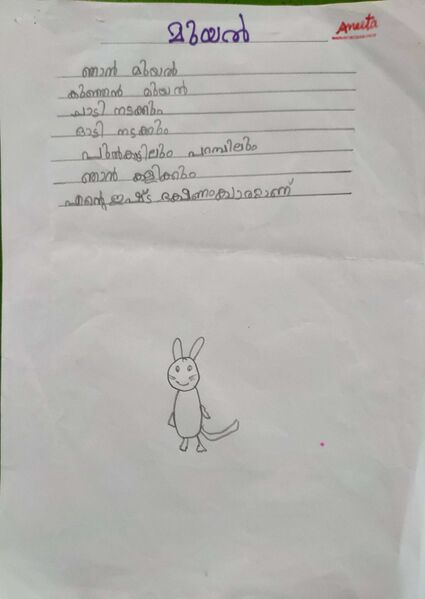 മുയൽ
Aneeta
ഞാൻ മുയൽ
കുഞ്ഞൻ മുയൽ
ചാടി നടക്കും
ഓടി നടക്കും
പുൽകാട്ടിലും പറമ്പിലും
ഞാൻ കളിക്കും
എന്റെ ഇഷ്ട ഭക്ഷണം